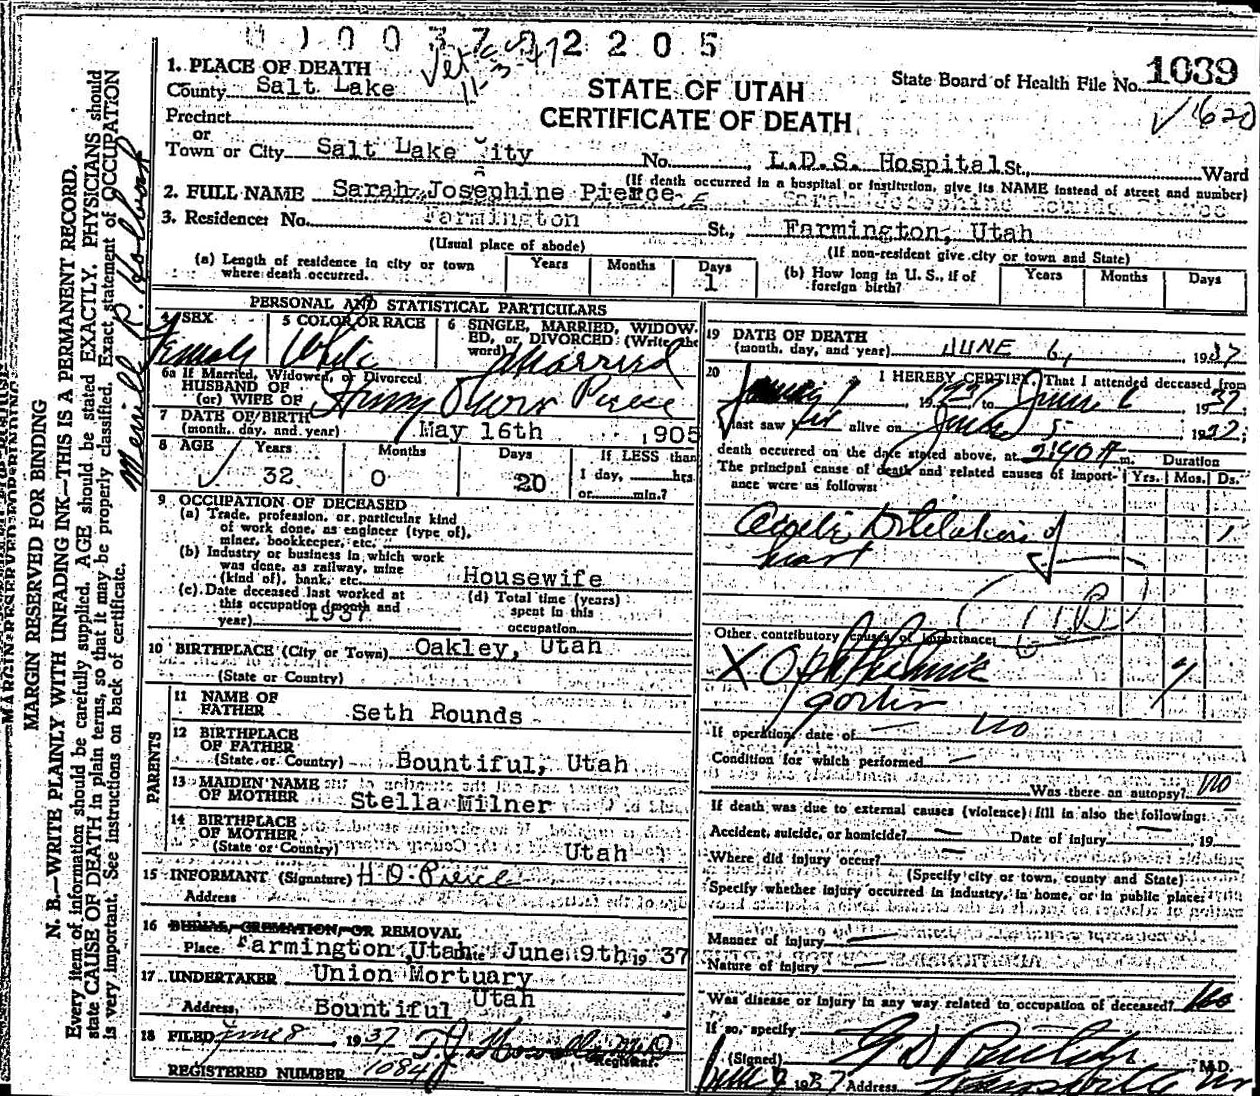 0 1 0 0 3 7 0 2 2 0 5
1. PLACE OF DEATH
County Salt Lake
STATE OF UTAH
CERTIFICATE OF DEATH
State Board of Health File No. 1039
Precinct
or
Town or City Salt Lake City No. L.D.S. Hospital St., Ward
(If death occurred in a hospital or institution, give its NAME instead of street and number)
2. FULL NAME Sarah Josephine Pierce
3. Residence: No. Farmington St., Farmington, Utah
(Usual place of abode) (If non-resident give city or town and State)
(a) Length of residence in city or town where death occurred. Years Months Days 1
(b) How long in U. S., if of foreign birth? Years Months Days
PERSONAL AND STATISTICAL PARTICULARS
4 SEX Female
5 COLOR OR RACE White
6 SINGLE, MARRIED, WIDOWED, or, DIVORCED (Write the word) Married
6a If Married, Widowed, or Divorced
HUSBAND OF
(or) WIFE OF Pierce
7 DATE OF BIRTH
(month, day, and year) May 16th 1905
8 AGE Years 32 Months 0 Days 20 If LESS than 1 day, hrs. or min.?
9 OCCUPATION OF DECEASED
(a) Trade, profession, or particular kind
of work done, as engineer (type of),
miner, bookkeeper, etc.
(b) Industry or business in which work
was done, as railway, mine
(kind of), bank, etc. Housewife
(c) Date deceased last worked at
this occupation (month and
year) 1937
(d) Total time (years)
spent in this
occupation
10 BIRTHPLACE (City or Town) Oakley, Utah
(State or Country)
PARENTS
11 NAME OF
FATHER Seth Rounds
12 BIRTHPLACE
OF FATHER
(State or Country) Bountiful, Utah
13 MAIDEN NAME
OF MOTHER Stella Milner
14 BIRTHPLACE
OF MOTHER
(State or Country) Utah
15 INFORMANT (Signature) H.O. Pierce
Address
16 BURIAL, CREMATION, OR REMOVAL
Place Farmington, Utah Date June 9th 19 37
17 UNDERTAKER Union Mortuary
Address, Bountiful Utah
18 FILED June 8, 1937 Registrar.
REGISTERED NUMBER 1084
19 DATE OF DEATH
(month, day, and year) JUNE 6, 1937
20 I HEREBY CERTIFY, That I attended deceased from
1937 to June 6 1937
I last saw her alive on June 5 1937;
death occurred on the date stated above, at 2:40 A m. Duration
The principal cause of death and related causes of importance were as follows: Yrs. Mos. Ds.
Acute Dilitation of 1
heart
Other contributory causes of importance:
X
If operation, date of no
Condition for which performed
Was there an autopsy? no
If death was due to external causes (violence) fill in also the following:
Accident, suicide, or homicide? Date of injury , 19
Where did injury occur?
(Specify city or town, county and State)
Specify whether injury occurred in industry, in home, or in public place:
Manner of injury
Nature of injury
Was disease or injury in any way related to occupation of deceased? no
If so, specify
(Signed) M.D.
1937 Address
MARGIN RESERVED FOR BINDING
N. B.—WRITE PLAINLY WITH UNFADING INK—THIS IS A PERMANENT RECORD.
Every item of information should be carefully supplied. AGE should be stated EXACTLY. PHYSICIANS should
state CAUSE OF DEATH in plain terms, so that it may be properly classified. Exact statement of OCCUPATION
is very important. See instructions on back of certificate.